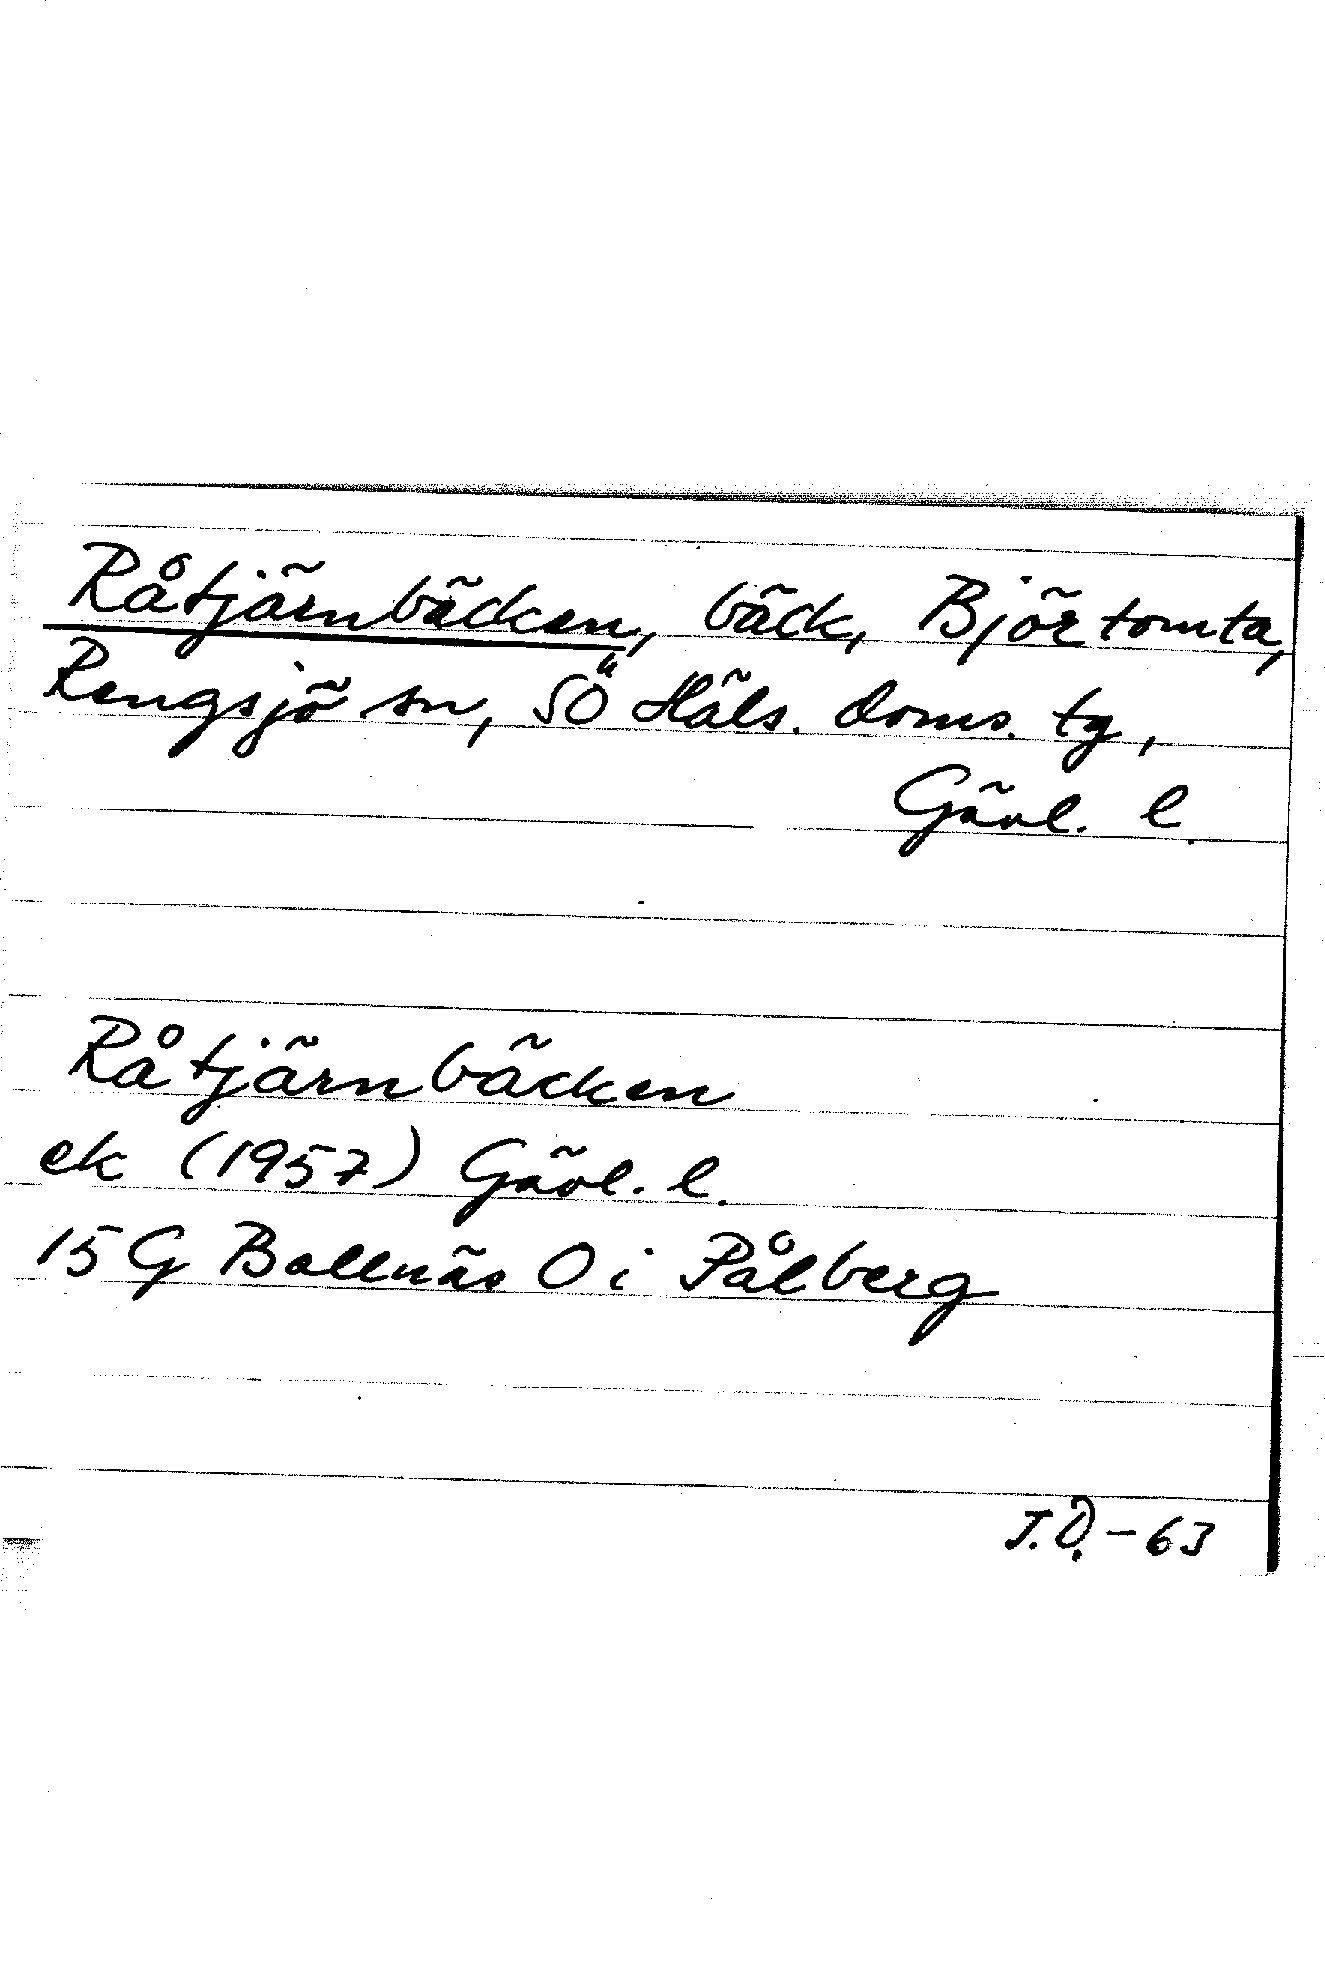 Råtjärnbäcken, bäck, Björtomta,
Rengsjö sn, SÖ Häls. doms. tg,
Gävl. l.
Råtjärnbäcken
ek (1957) Gävl. l.
15 G Bollnäs O i Pålberg
J.Ö.-63